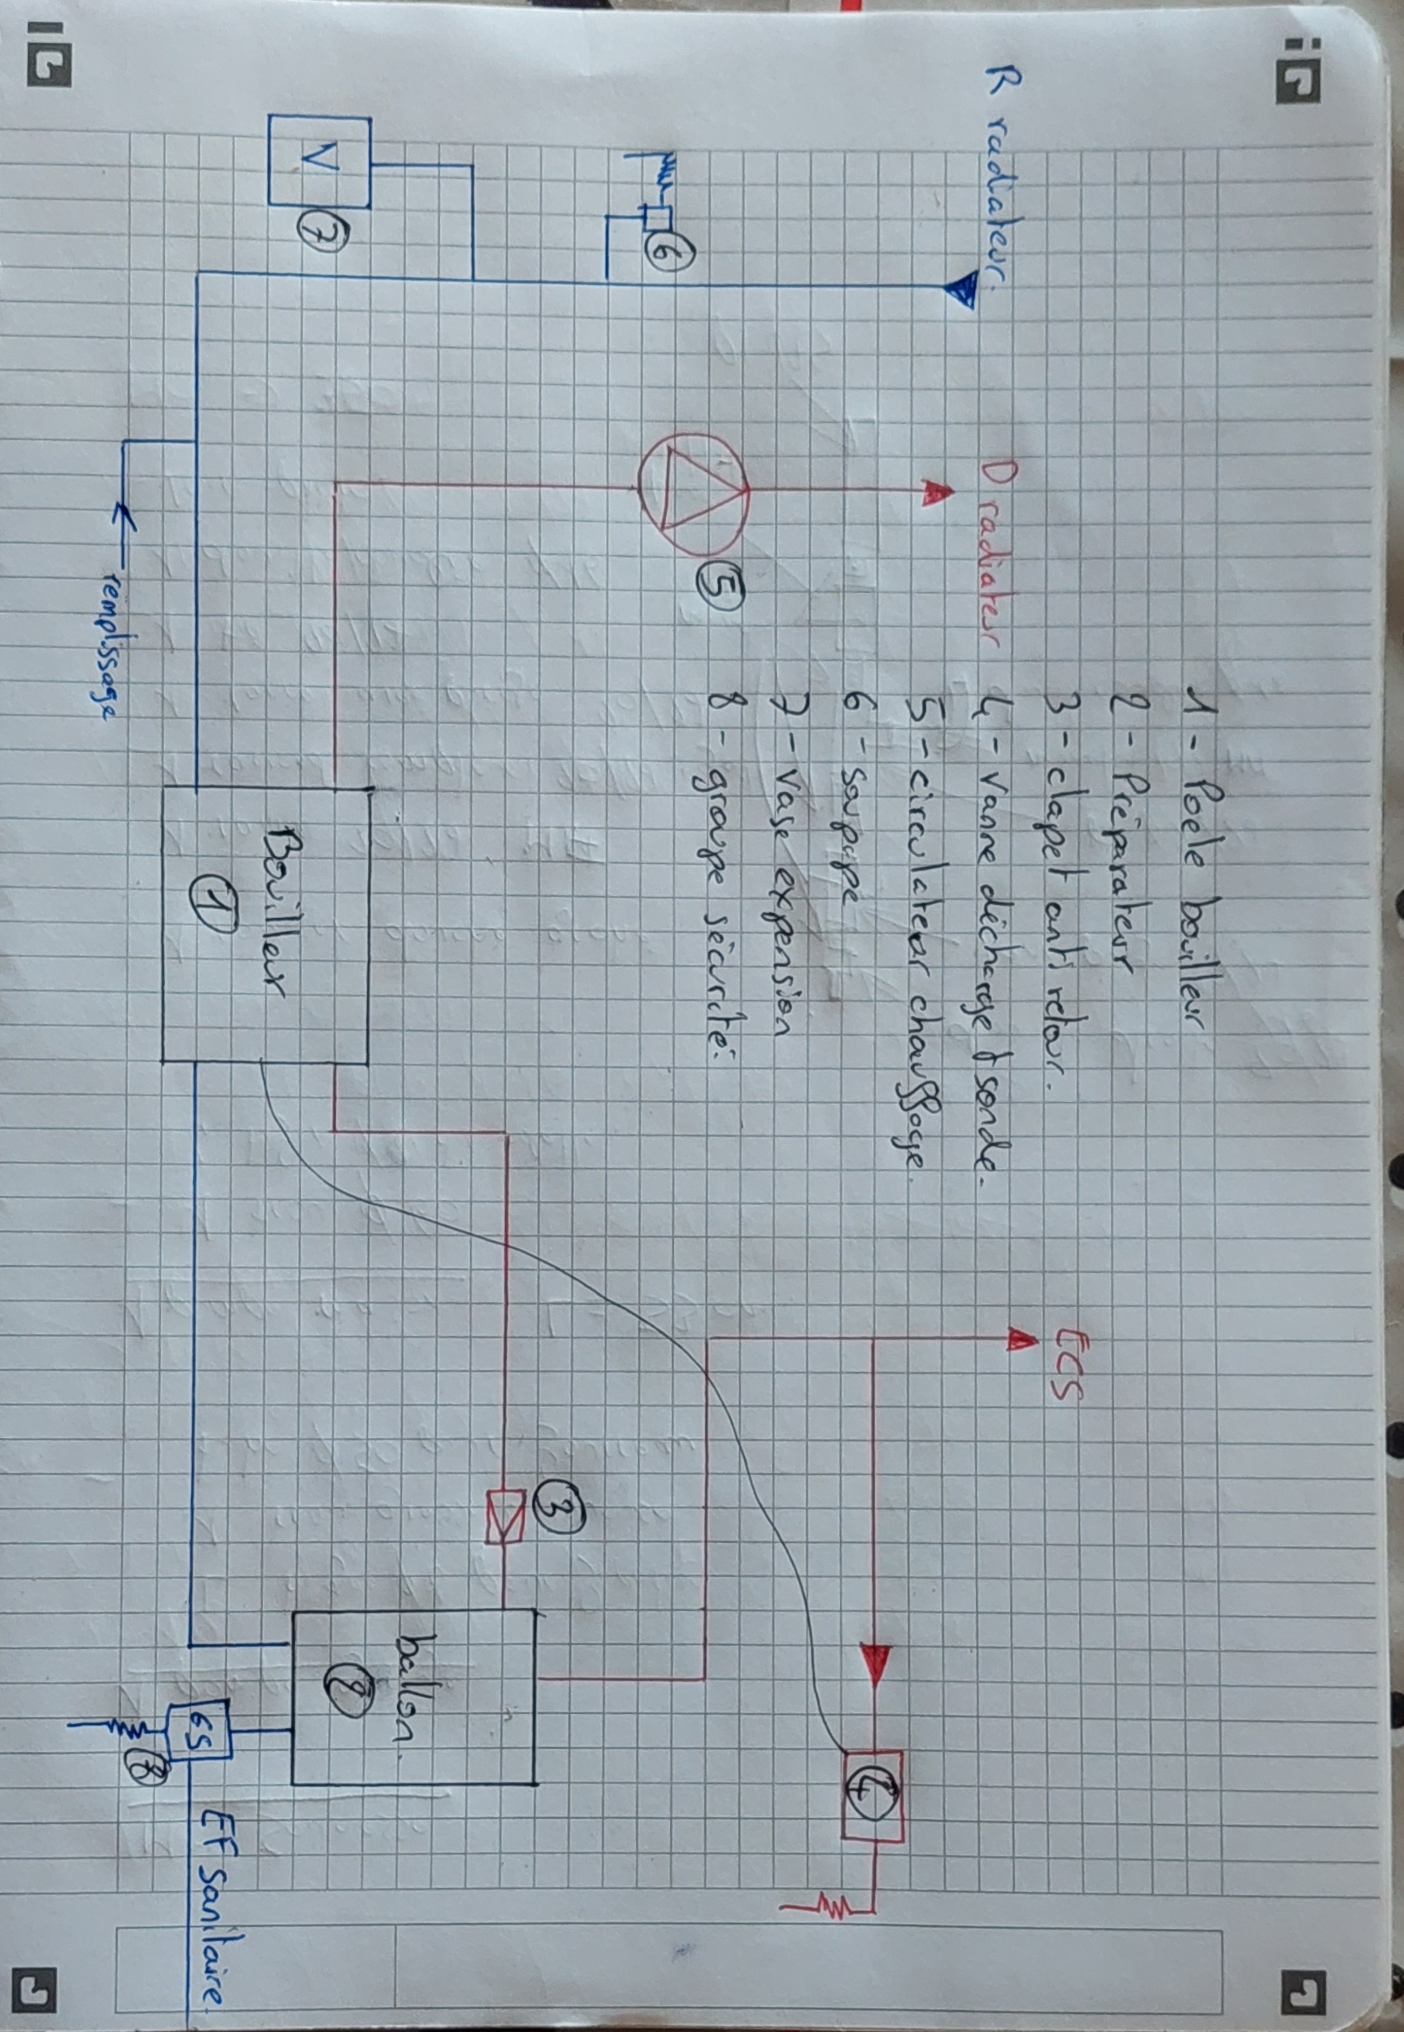 R radiateur.
D radiateur
1 - Poele bouilleur
2 - Préparateur
3 - clapet anti retour.
4 - vanne décharge + sonde.
5 - circulateur chauffage.
6 - soupape
7 - vase expension
8 - groupe sécurité.
ECS
6
V
7
5
remplissage
Bouilleur
1
3
ballon.
2
4
GS
8
EF Sanitaire.